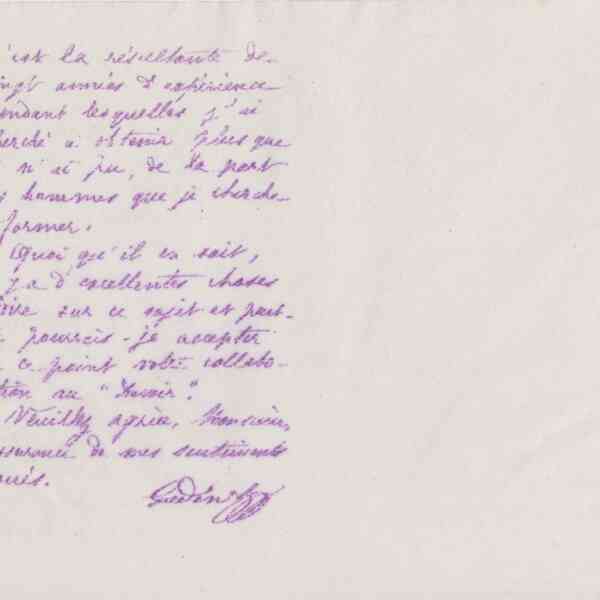 'est la résultante de
ingt années d'expérience
endant lesquelles j'ai
herché à obtenir plus que
n'ai pu, de la part
s hommes que je cherche
former.
Quoi qu'il en soit,
y a d'excellentes choses
dire sur ce sujet et peut-
pourrais-je accepter
ce point votre collabo-
tion au "Devoir".
Veuillez agréer, Monsieur,
assurance de mes sentiments
oués.
Godin